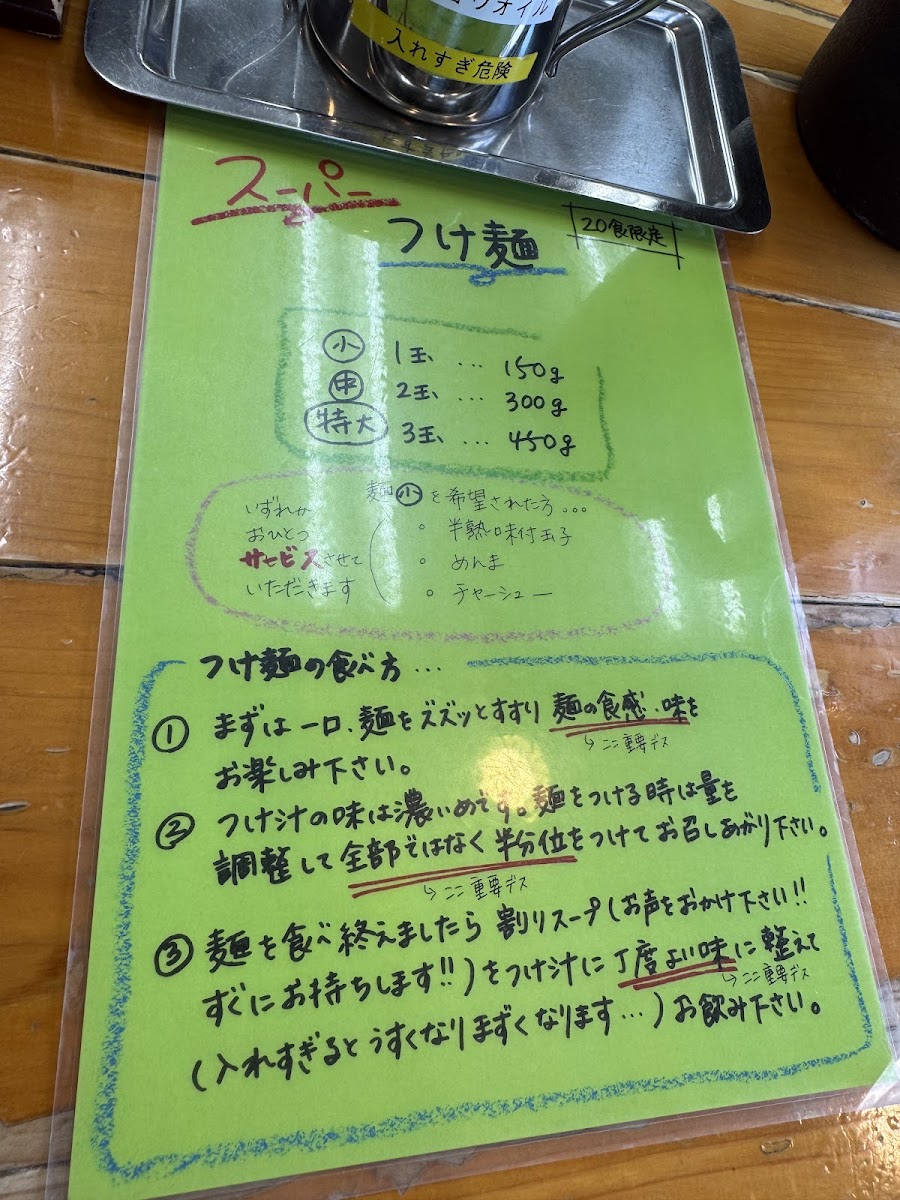 オイル
入れすぎ危険
スーパー
つけ麺
20食限定
小 1玉、… 150g
中 2玉、… 300g
特大 3玉、… 450g
麺小を希望された方…
いずれか
おひとつ
サービスさせて
いただきます
。半熟味付玉子
。めんま
。チャーシュー
つけ麺の食べ方…
① まずは一口、麺をズズッとすすり 麺の食感、味を
ココ重要デス
お楽しみ下さい。
② つけ汁の味は濃いめです。麺をつける時は量を
調整して全部ではなく半分位をつけてお召しあがり下さい。
ココ重要デス
③ 麺を食べ終えましたら 割りスープ(お声をおかけ下さい!!
すぐにお持ちします!!)をつけ汁に丁度よい味に整えて
ココ重要デス
(入れすぎるとうすくなりまずくなります…)お飲み下さい。